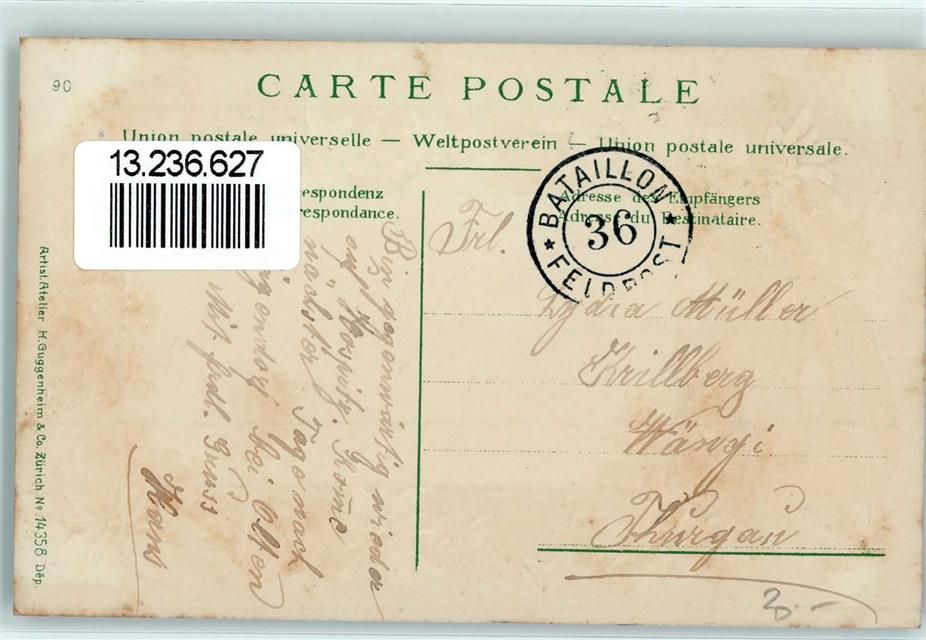 90
CARTE POSTALE
Union postale universelle — Weltpostverein — Union postale universale.
13.236.627
espondenz
respondance.
Adresse des Empfängers
Adresse du Destinataire.
BATAILLON
36
FELDPOST
Bin gegenwärtig wieder
auf Hospitz. Komme
nächster Tage nach
bei Olten
Mit frdl. Gruss
Hans
Frl.
Lydia Müller
Krillberg
Wängi
Thurgau
Artist. Atelier H. Guggenheim & Co. Zürich No 14358 Dép.
20.-